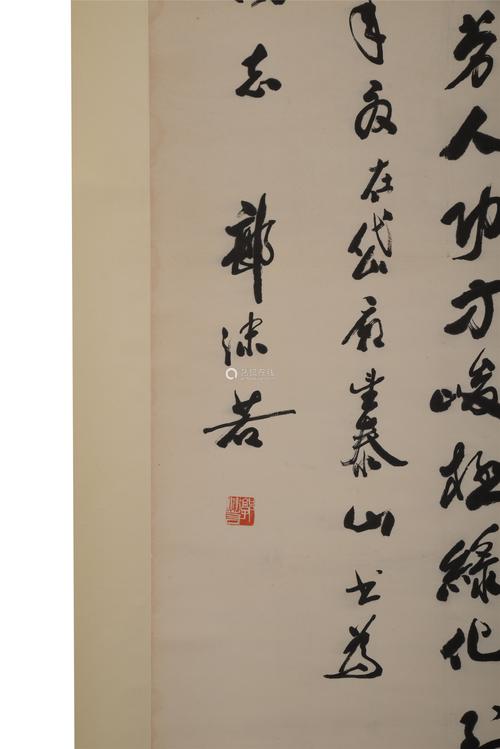 劳人功方峻極綠化
年夏在岱廟望泰山书為
志
郭沫若